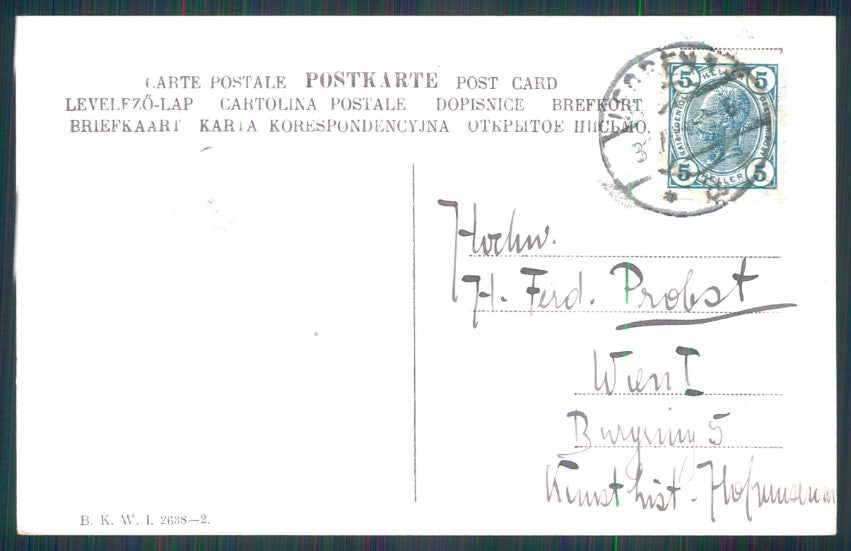 CARTE POSTALE POSTKARTE POST CARD
LEVELEZŐ-LAP CARTOLINA POSTALE DOPISNICE BREFKORT
BRIEFKAART KARTA KORESPONDENCYJNA ОТКРЫТОЕ ПИСЬМО.
5 HELLER 5
5 HELLER 5
Hochw.
H. Ferd. Probst
Wien I
Burgring 5
Kunsthist. Hofmuseum
B. K. W. I. 2638—2.